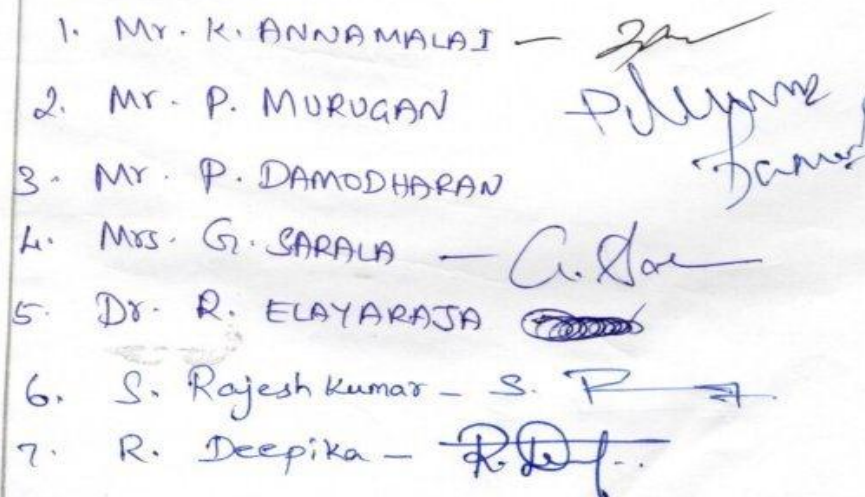 1. Mr. K. ANNAMALAI -
2. Mr. P. MURUGAN
3. Mr. P. DAMODHARAN
4. Mrs. G. SARALA - G. Sar
5. Dr. R. ELAYARAJA
6. S. Rajesh Kumar - S. R
7. R. Deepika - R. De